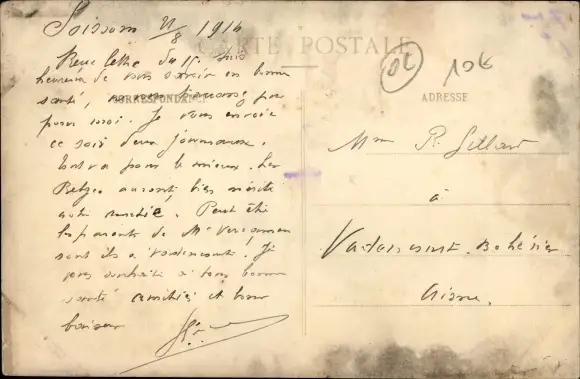 Soissons 21/8 1914
CARTE POSTALE
Reçu lettre du 15. Suis
heureux de vous savoir en bonne
santé, ne vous
CORRESPONDANCE
pour moi. Je vous envoie
ce soir deux journaux.
tout va pour le mieux. Les
Belges auront bien mérité
Peut être
les parents de Mr
sont ils à Vadencourt. Je
vous souhaite à tous bonne
santé amitiés et bons
baisers
02 10€
ADRESSE
Mme P.
à
Vadencourt-Bohéries
Aisne.